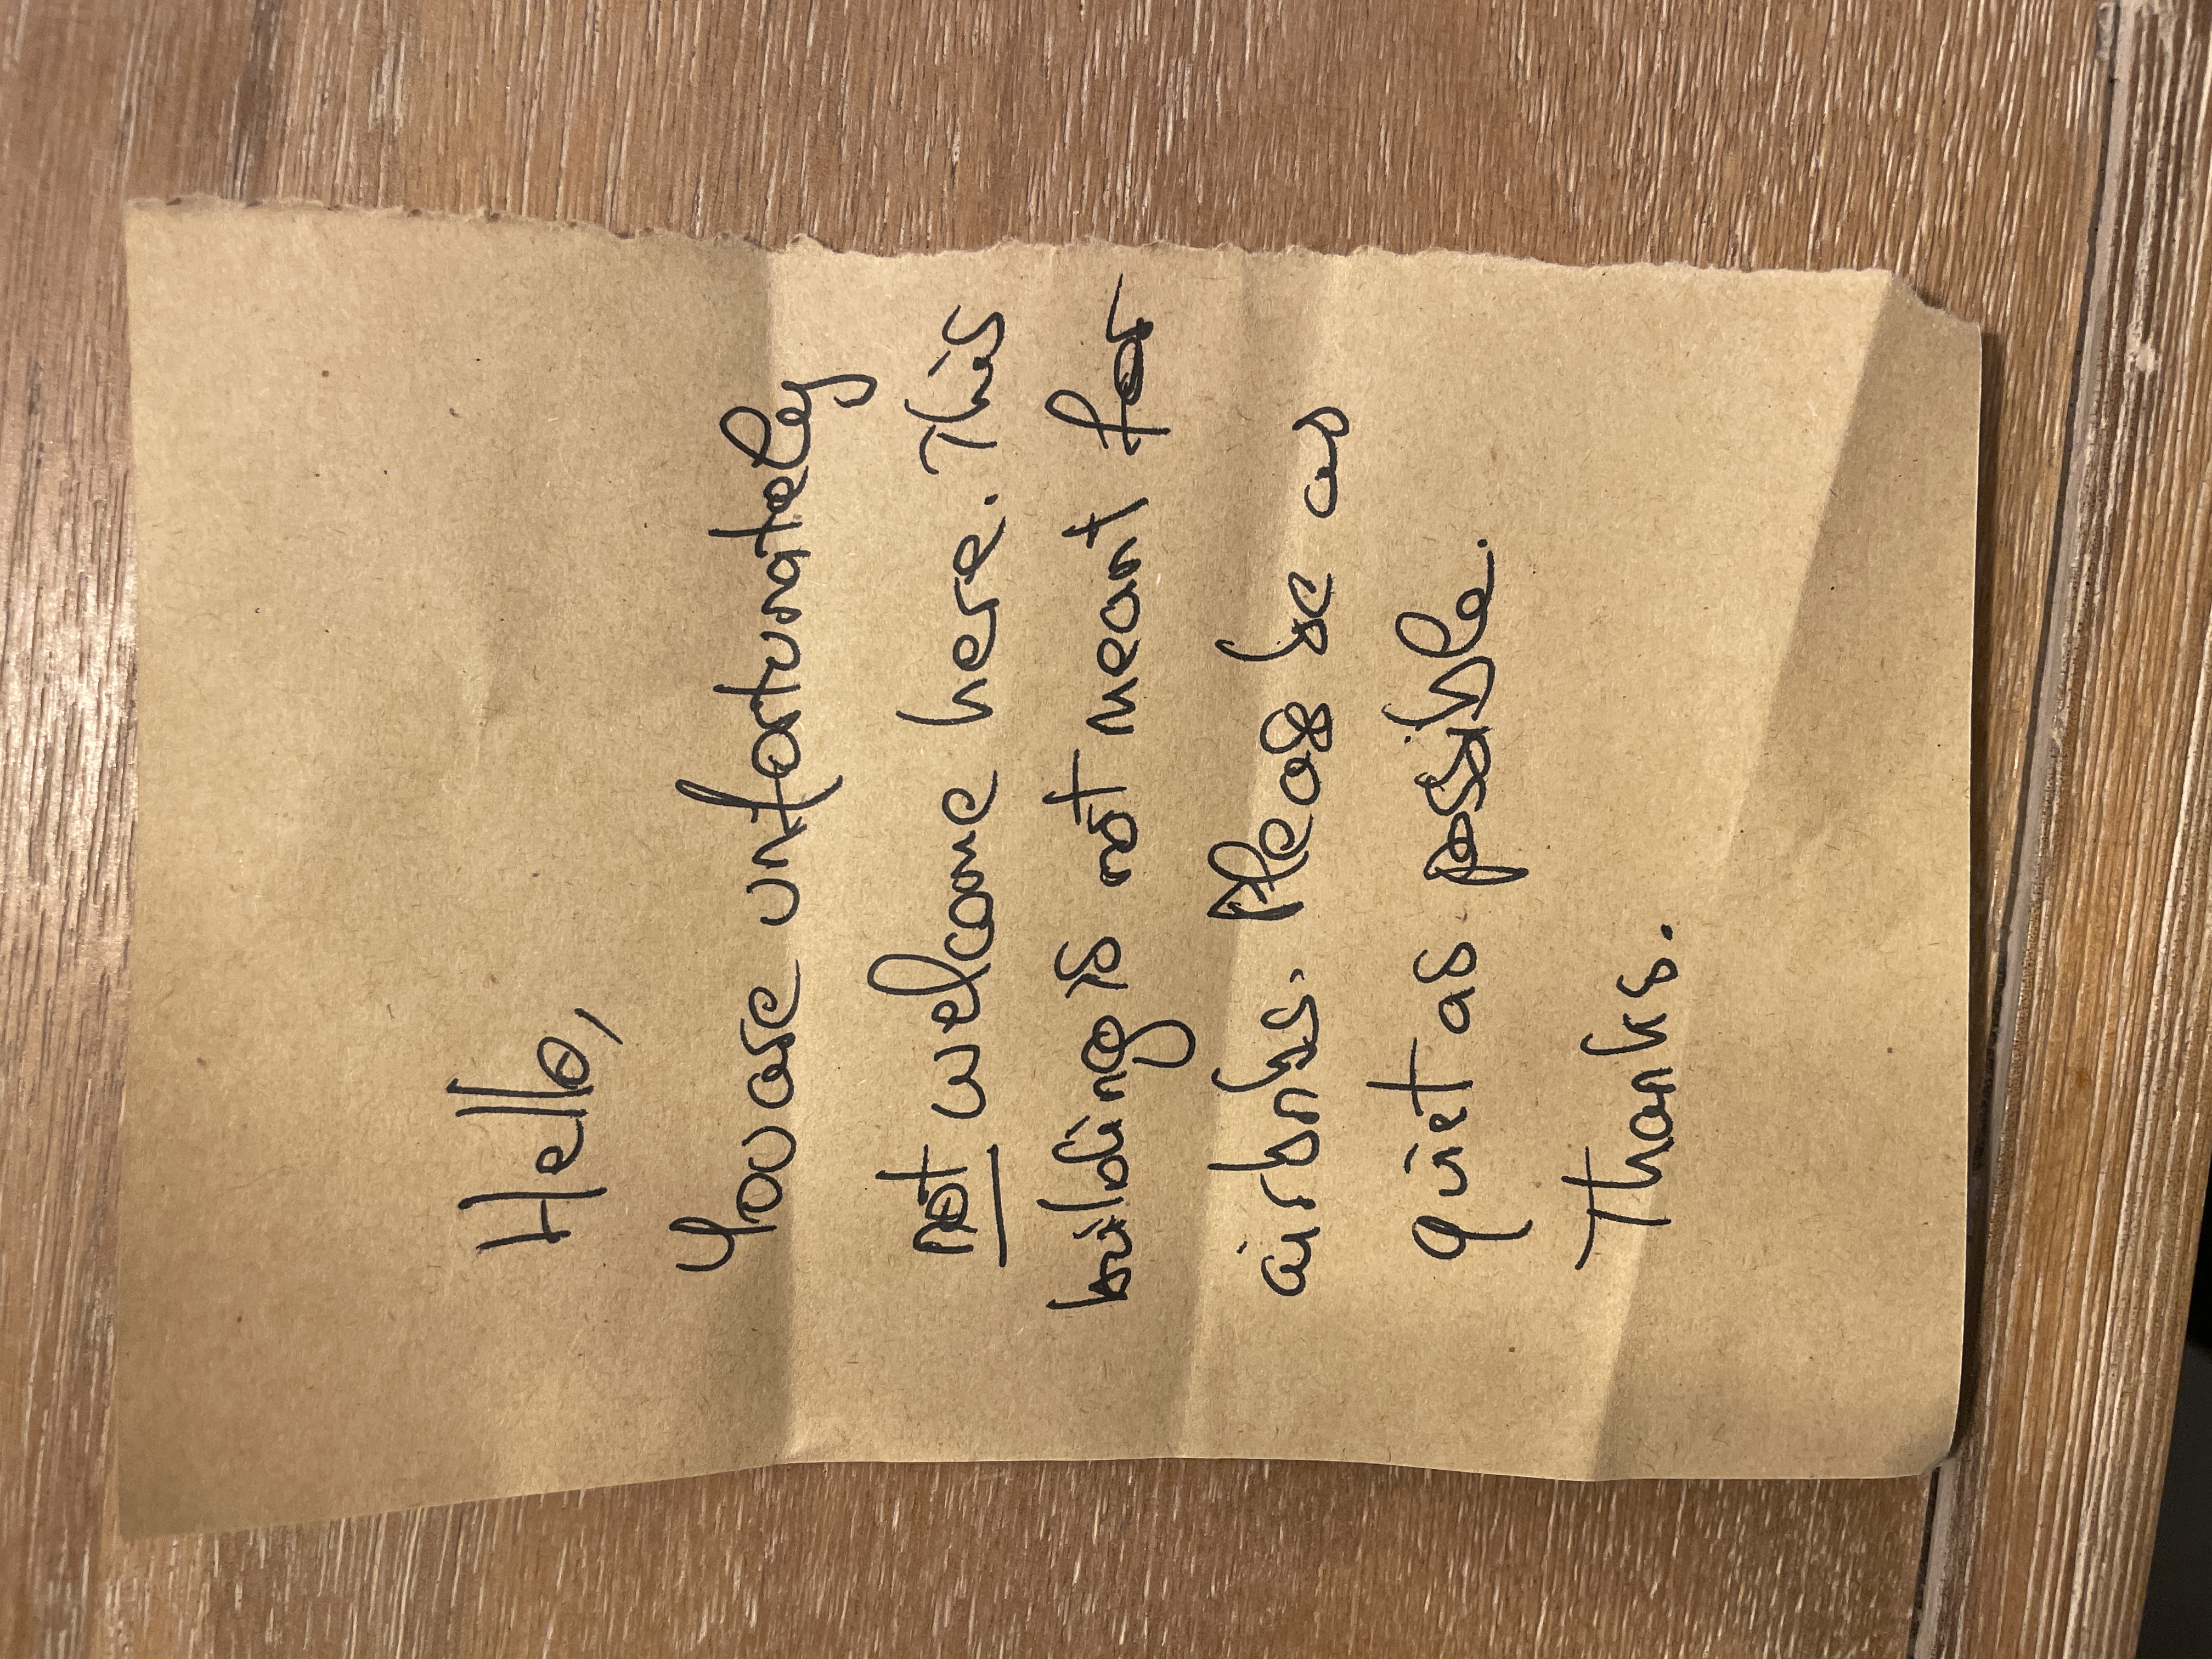 Hello,
You are unfortunately
not welcome here. This
building is not meant for
airbnbs. Please be as
quiet as possible.
Thanks.